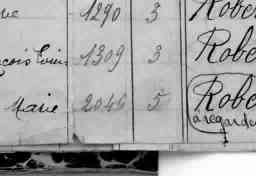 ve 1290 3 Robe
ançois Louis 1309 3 Robe
Marie 2046 5 Robe
a regarde